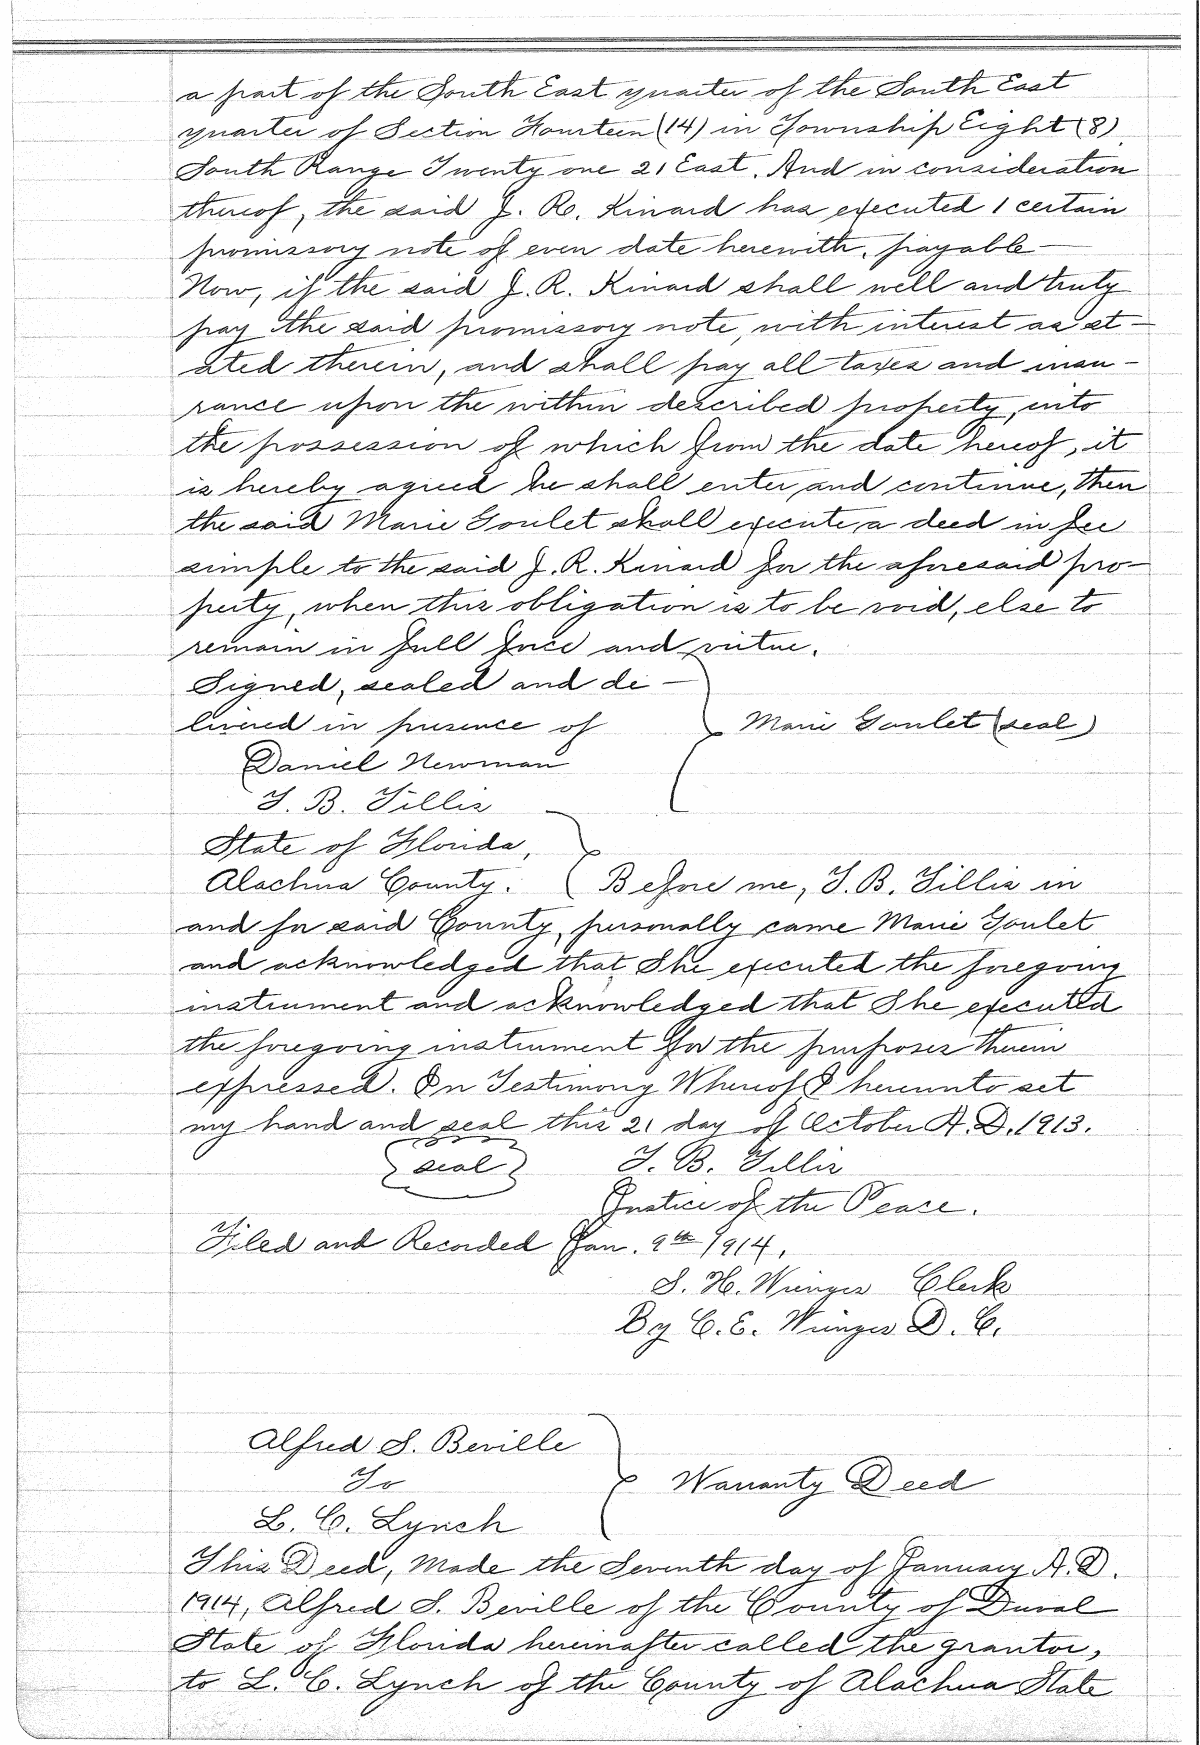 a part of the South East quarter of the South East
quarter of Section Fourteen (14) in Township Eight (8)
South Range Twenty one 21 East. And in consideration
thereof, the said J. R. Kinard has executed 1 certain
promissory note of even date herewith, payable —
Now, if the said J. R. Kinard shall well and truly
pay the said promissory note, with interest as st-
ated therein, and shall pay all taxes and insu-
rance upon the within described property, into
the possession of which from the date hereof, it
is hereby agreed he shall enter and continue, then
the said Marie Goulet shall execute a deed in fee
simple to the said J. R. Kinard for the aforesaid pro-
perty, when this obligation is to be void, else to
remain in full force and virtue.
Signed, sealed and de-
livered in presence of Marie Goulet (seal)
Daniel Newman
T. B. Tillis
State of Florida,
Alachua County. Before me, T. B. Tillis in
and for said County, personally came Marie Goulet
and acknowledged that She executed the foregoing
instrument and acknowledged that She executed
the foregoing instrument for the purposes therein
expressed. In Testimony Whereof I hereunto set
my hand and seal this 21 day of October A. D. 1913.
seal T. B. Tillis
Justice of the Peace.
Filed and Recorded Jan. 9th 1914.
S. H. Wienges Clerk
By C. E. Wienges D. C.
Alfred S. Beville
To Warranty Deed
L. C. Lynch
This Deed, Made the Seventh day of January A. D.
1914, Alfred S. Beville of the County of Duval
State of Florida hereinafter called the grantor,
to L. C. Lynch of the County of Alachua State